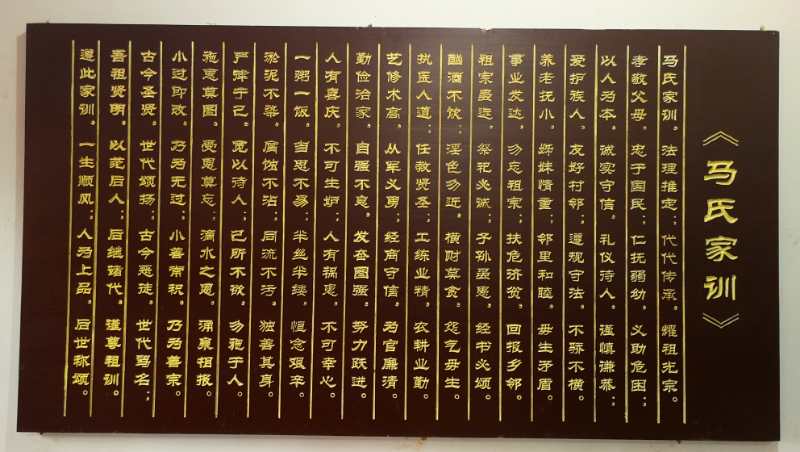 《马氏家训》
马氏家训。法理推定；代代传承。耀祖光宗。
孝敬父母。忠于国民；仁抚弱幼。义助危困；
以人为本。诚实守信。礼仪待人。谨慎谦恭；
爱护族人。友好村邻；遵规守法。不骄不横。
养老抚小。姊妹情重；邻里和睦。毋生矛盾。
事业发达。勿忘祖宗；扶危济贫。回报乡邻。
祖宗虽远。祭祀必诚；子孙虽愚。经书必颂。
酗酒不饮。淫色勿近。横财莫贪。怨气毋生。
执医人道；任教贤圣；工练业精。农耕业勤。
艺修术高。从军义勇；经商守信。为官廉清。
勤俭治家。自强不息。发奋图强。努力跃进。
人有喜庆。不可生妒；人有祸患。不可幸心。
一粥一饭。当思不易；半丝半缕。恒念艰辛。
淤泥不染。腐蚀不沾。同流不污。独善其身。
严律于己。宽以待人；己所不欲。勿施于人。
施恩莫图。受恩莫忘；滴水之恩。涌泉相报。
小过即改。乃为无过；小善常积。乃为善宗。
古今圣贤。世代颂扬；古今恶徒。世代骂名；
吾祖贤明。以范后人；后继诸代。谨尊祖训。
遵此家训。一生顺风；人为上品。后世称颂。